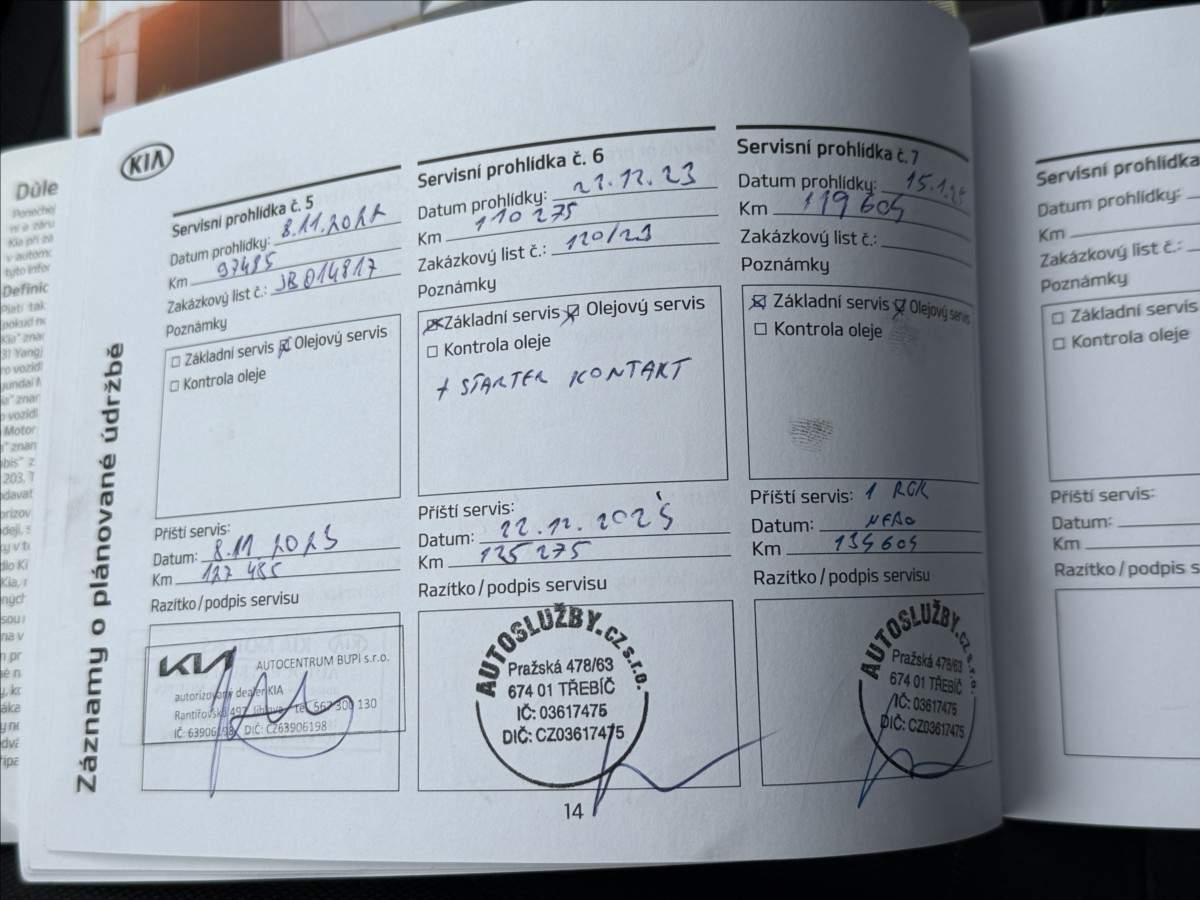 KIA
Záznamy o plánované údržbě
Servisní prohlídka č. 5
Datum prohlídky: 8.11.2022
Km 97485
Zakázkový list č.: JB014817
Poznámky
Základní servis Olejový servis
Kontrola oleje
Příští servis:
Datum: 8.11.2023
Km 127 485
Razítko/podpis servisu
KIA AUTOCENTRUM BUPI s.r.o.
autorizovaný dealer KIA
Rantířovská 497, Jihlava tel. 567 300 130
IČ: 63906198 DIČ: CZ63906198
Servisní prohlídka č. 6
Datum prohlídky: 22.12.23
Km 110 275
Zakázkový list č.: 120/23
Poznámky
Základní servis Olejový servis
Kontrola oleje
+ STARTER KONTAKT
Příští servis:
Datum: 22.12.2025
Km 125 275
Razítko/podpis servisu
AUTOSLUŽBY.CZ s.r.o.
Pražská 478/63
674 01 TŘEBÍČ
IČ: 03617475
DIČ: CZ03617475
Servisní prohlídka č. 7
Datum prohlídky: 15.1.25
Km 119 604
Zakázkový list č.:
Poznámky
Základní servis Olejový servis
Kontrola oleje
Příští servis: 1 ROK
Datum: NEBO
Km 134 604
Razítko/podpis servisu
AUTOSLUŽBY.CZ s.r.o.
Pražská 478/63
674 01 TŘEBÍČ
IČ: 03617475
DIČ: CZ03617475
14
Servisní prohlídka
Datum prohlídky:
Km
Zakázkový list č.:
Poznámky
Základní servis
Kontrola oleje
Příští servis:
Datum:
Km
Razítko/podpis